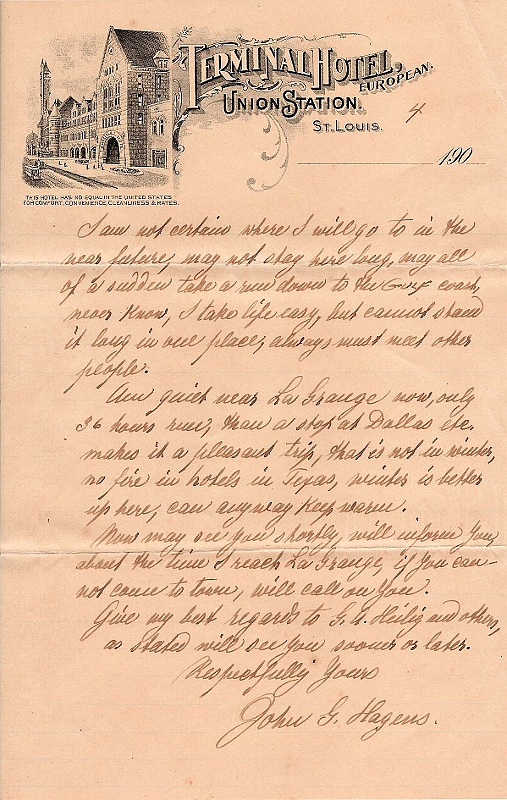 TERMINAL HOTEL,
EUROPEAN.
UNION STATION.
ST. LOUIS.
4
190
THIS HOTEL HAS NO EQUAL IN THE UNITED STATES
FOR COMFORT, CONVENIENCE, CLEANLINESS & RATES.
I am not certain where I will go to in the
near future, may not stay here long, may all
of a sudden take a run down to the Gulf coast,
never know, I take life easy, but cannot stand
it long in one place, always must meet other
people.
Am quiet near La Grange now, only
36 hours run, than a stop at Dallas etc.
makes it a pleasant trip, that is not in winter,
no fire in hotels in Texas, winter is better
up here, can anyway keep warm.
Now may see you shortly, will inform you,
about the time I reach La Grange, if you can-
not come to town, will call on you.
Give my best regards to G. A. Heilig and others,
as stated will see you sooner or later.
Respectfully Yours
John G. Hagens.